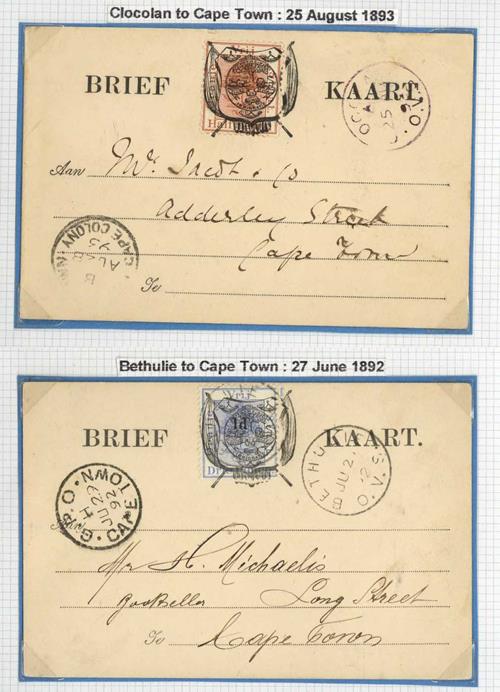 Clocolan to Cape Town : 25 August 1893
BRIEF KAART.
Half
Aan Mr. & Co
Adderley Street
Cape Town
Te
CAPE COLONY
Bethulie to Cape Town : 27 June 1892
BRIEF KAART.
1d
G.P.O. CAPE TOWN
JU 27
92
BETHU
JU 2
O.V.S.
Aan
Mr H. Michaelis
Bookseller Long Street
Te Cape Town